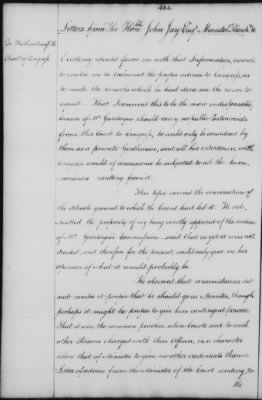 484
Letters from The Honble John Jay Esqr Minister
To His Excellency the
President of Congress
Excellency should favor me with that Information, in order
to enable me to transmit the proper advices to Congress, &
to make the remarks which he had done me the honor to
request. That I conceived this to be the more indispensable,
because if Mr Gardoqui should carry no public Testimonials
from this Court to Congress, he could only be considered by
them as a private Gentleman, and all his intercourse with
Congress would of consequence be subjected to all the Incon-
veniences resulting from it.
This topic caused the conversation
of the delicate ground to which the Count had led it. He ad-
mitted the propriety of my being exactly apprised of the nature
of Mr Gardoqui's Commission; said that as yet it was not
decided, and therefore for the present, could only give me his
opinion of what it would probably be.
He observed that circumstances did
not render it proper that he should go as Minister, though
perhaps it might be proper to give him contingent powers.
That it was the common practice, when Courts sent to each
other Persons charged with their Affairs, in a character
below that of Minister to give no other credentials than a
Letter of advice from the Minister of the Court sending, to
the